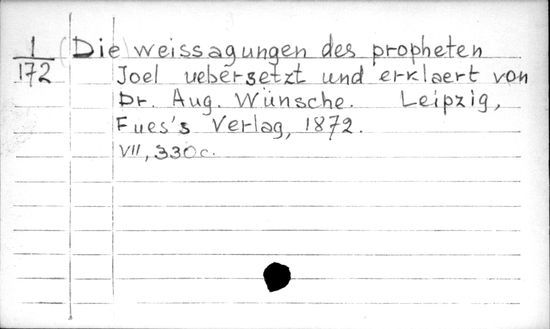 1/172 Die weissagungen des propheten
Joel uebersetzt und erklaert von
Dr. Aug. Wünsche. Leipzig,
Fues's Verlag, 1872.
VII, 330c.